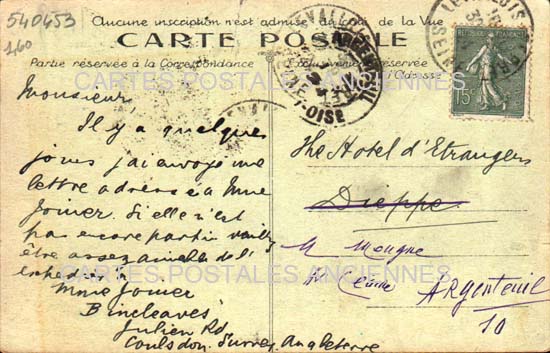 540453
1,60
Aucune inscription n'est admise du côté de la Vue
CARTE POSTALE
Partie réservée à la Correspondance
réservée
l'Adresse
CARTES POSTALES ANCIENNES
REPUBLIQUE FRANCAISE
15c
ARGENTEUIL
ET-OISE
Monsieur
Il y a quelques
jours j'ai envoyé une
lettre adressé à Mme
Joiner. Si elle n'est
pas encore partie
être assez aimable de l'
Mme Joiner
Bincleaves
Julien Rd
Coulsdon. Surrey. Angleterre
The Hotel d'Etrangers
Dieppe
CARTES POSTALES ANCIENNES
ARGENTEUIL
10